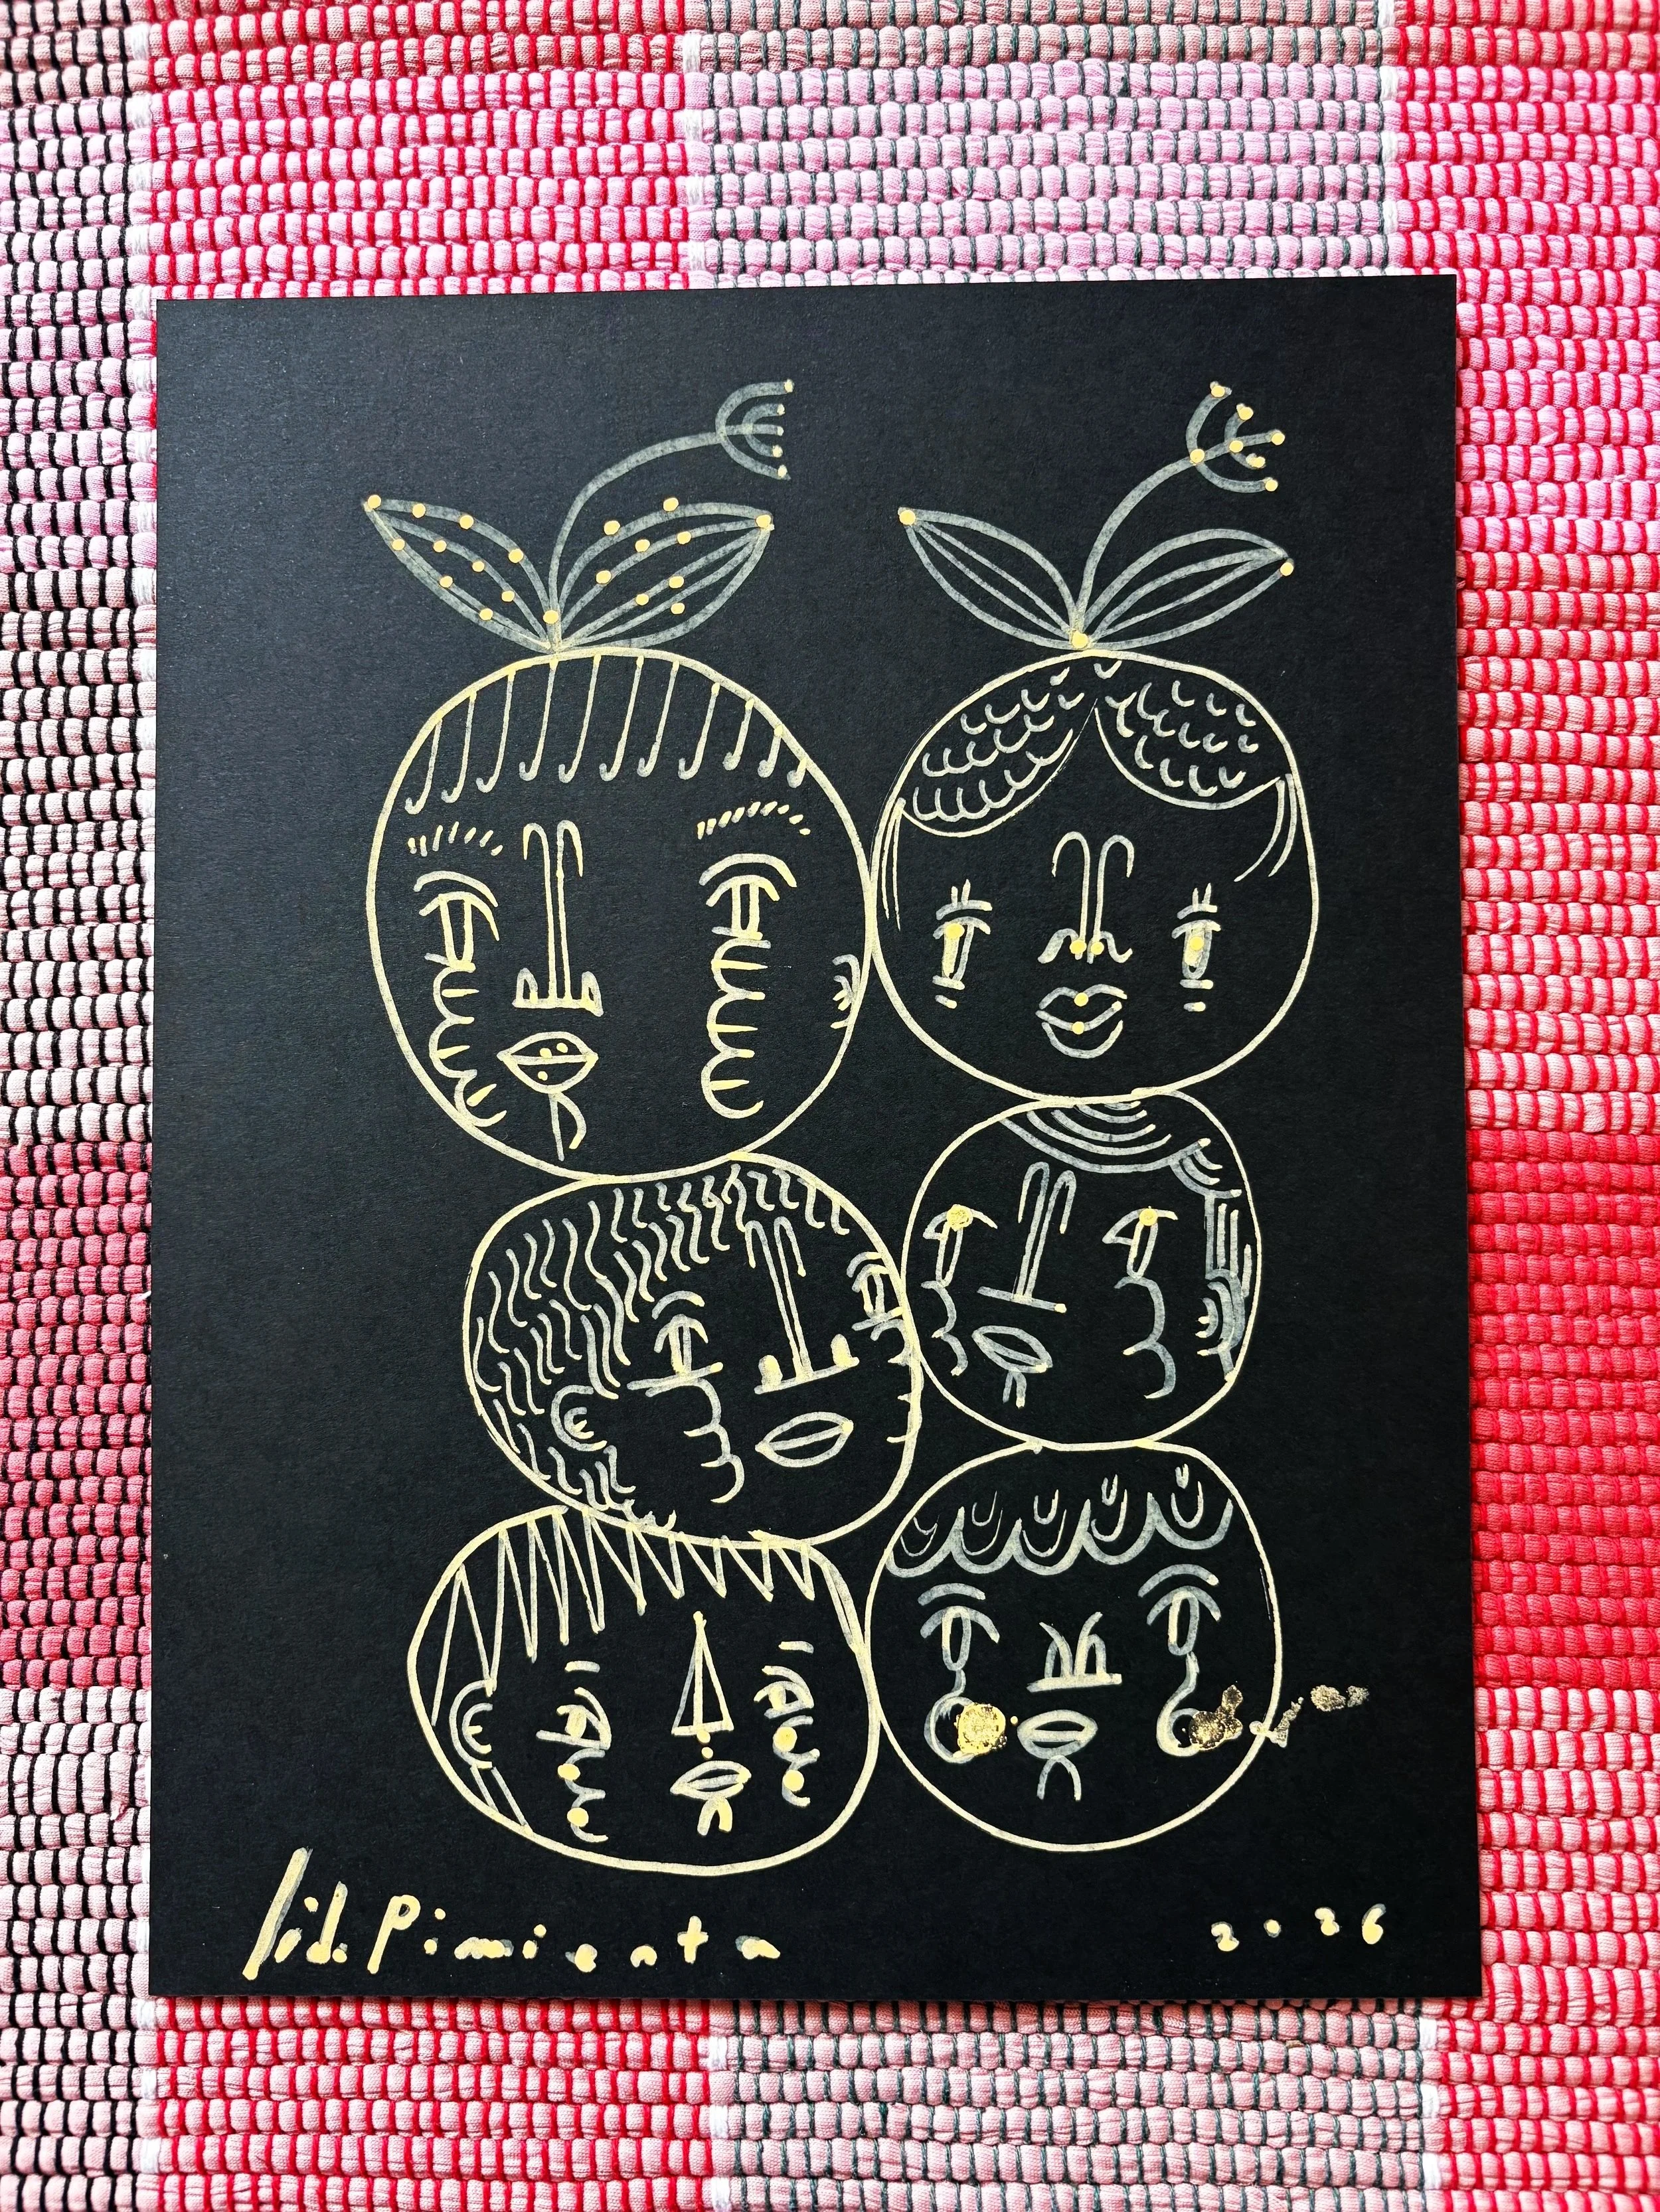 lid. Pimienta 2026